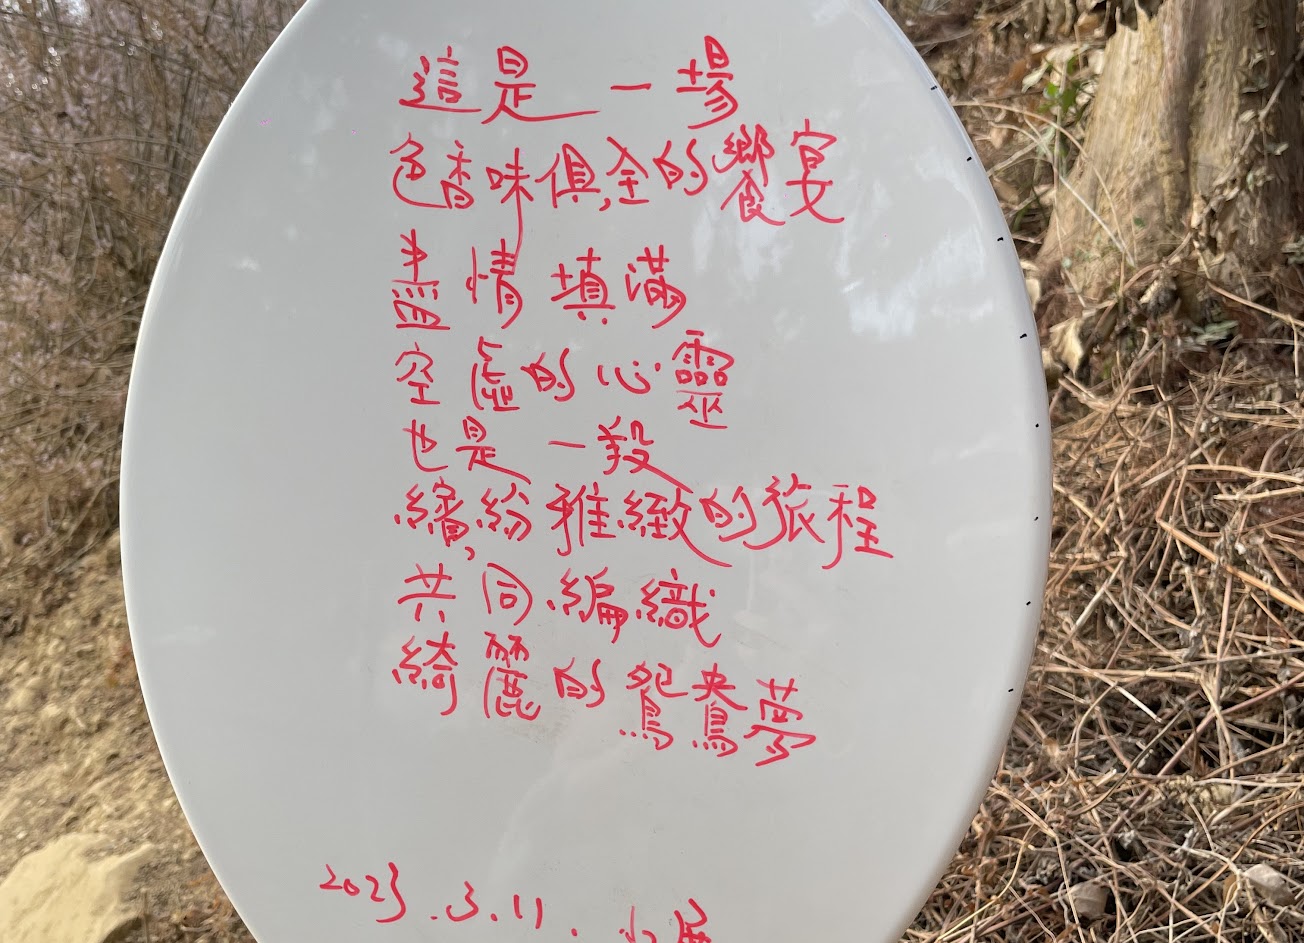 這是一場
色香味俱全的饗宴
盡情填滿
空虛的心靈
也是一段
繽紛雅緻的旅程
共同編織
綺麗的鴛鴦夢
2023.3.11. 小